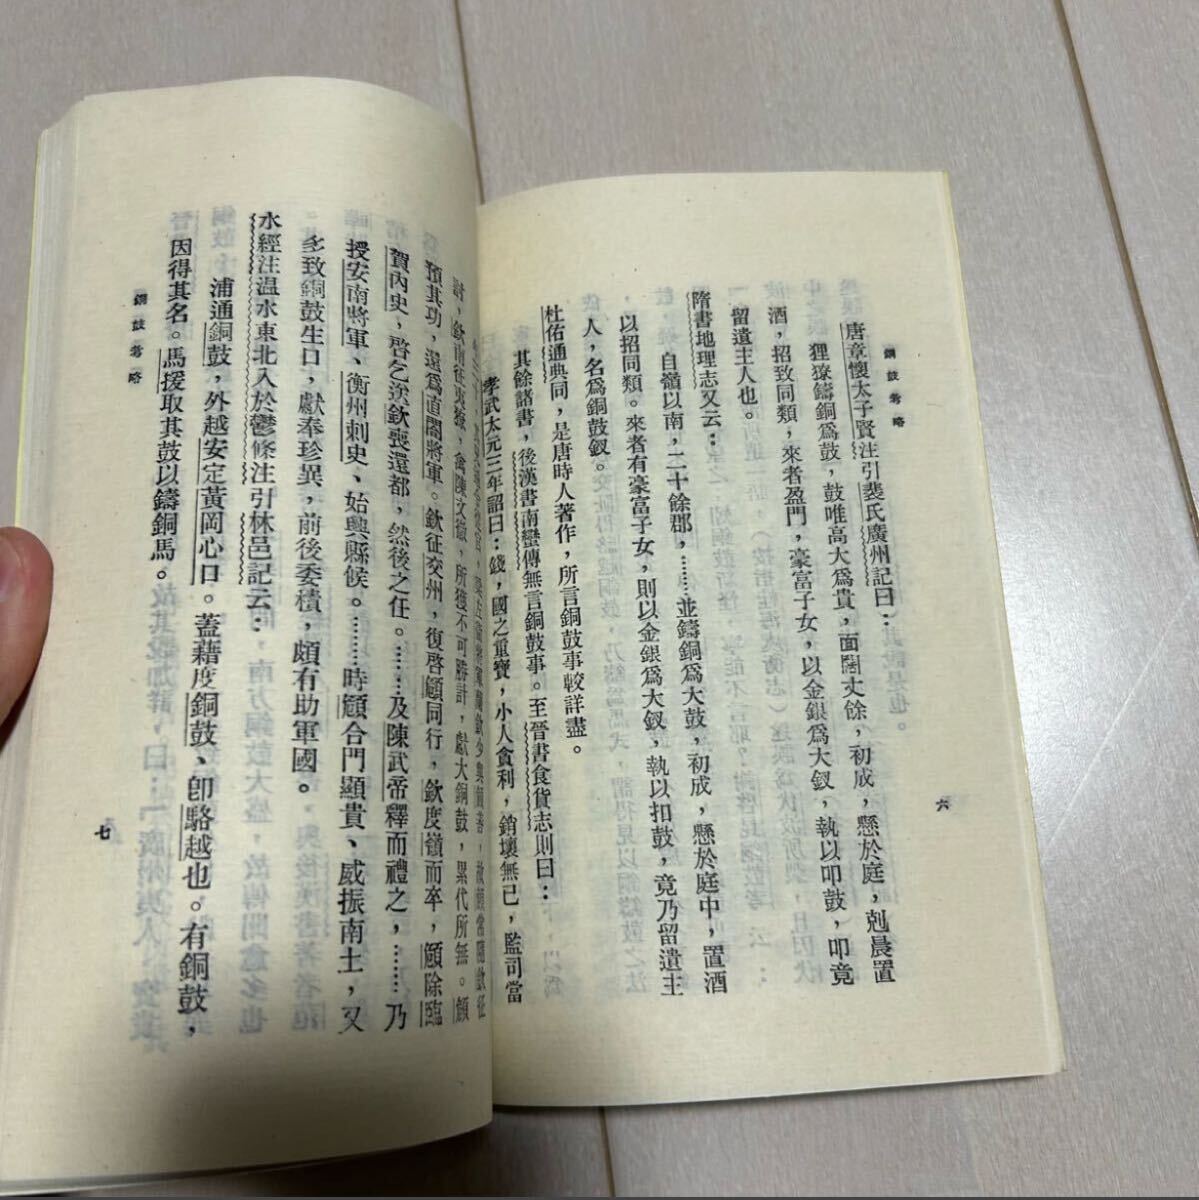 銅鼓考略
唐章懷太子賢注引裴氏廣州記曰：
狸獠鑄銅爲鼓，鼓唯高大爲貴，面闊丈餘，初成，懸於庭，剋晨置
酒，招致同類，來者盈門，豪富子女，以金銀爲大釵，執以叩鼓，叩竟
留遺主人也。
隋書地理志又云：
自嶺以南，二十餘郡，……並鑄銅爲大鼓，初成，懸於庭中，置酒
以招同類。來者有豪富子女，則以金銀爲大釵，執以扣鼓，竟乃留遺主
人，名爲銅鼓釵。
杜佑通典同，是唐時人著作，所言銅鼓事較詳盡。
其餘諸書，後漢書南蠻傳無言銅鼓事。至晉書食貨志則曰：
孝武太元三年詔曰：錢，國之重寶，小人貪利，銷壞無已，監司當
六
蘭欽少與頠善，故頠常隨欽征
討，欽南征夷獠，禽陳文徹，所獲不可勝計，獻大銅鼓，累代所無。頠
預其功，還爲直閣將軍。欽征交州，復啓頠同行，欽度嶺而卒，頠除臨
賀內史，啓乞送欽喪還都，然後之任。……及陳武帝釋而禮之，……乃
授安南將軍、衡州刺史、始興縣侯。……時頠合門顯貴、威振南土，又
多致銅鼓生口，獻奉珍異，前後委積，頗有助軍國。
水經注溫水東北入於鬱條注引林邑記云：
浦通銅鼓，外越安定黃岡心口。蓋藉度銅鼓、卽駱越也。有銅鼓，
因得其名。馬援取其鼓以鑄銅馬。
銅鼓考略
七